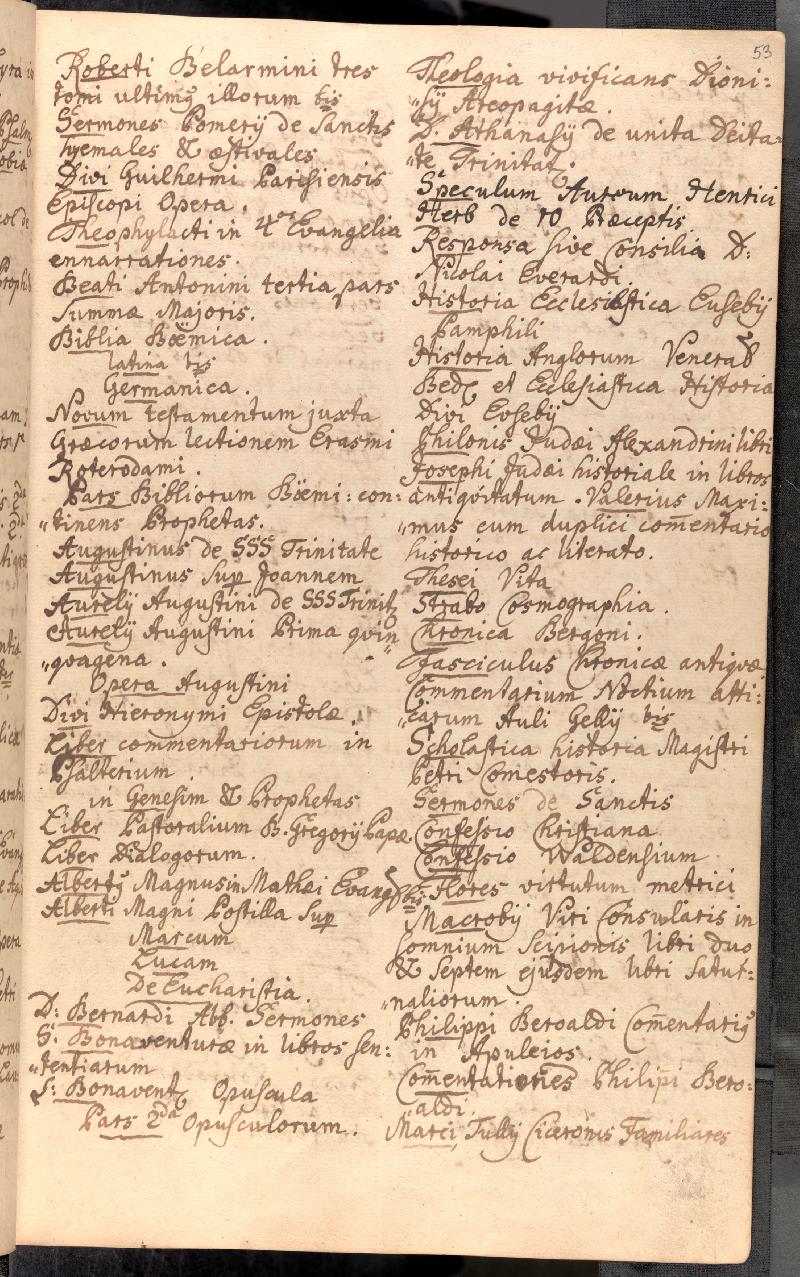 53
Roberti Belarmini tres
tomi ultimꝯ illorum bis
Sermones Pomerÿ de Sanctis
hyemales & æstivales
Divi Guilhermi Parisiensis
Episcopi Opera.
Theophylacti in 4or Evangelia
ennarrationes.
Beati Antonini tertia pars
Summæ Majoris.
Biblia Böemica.
latina bis
Germanica.
Novum testamentum juxta
Græcorum lectionem Erasmi
Roterodami.
Pars Bibliorum Böemi: con:
„tinens Prophetas.
Augustinus de SSS Trinitate
Augustinus Sup Joannem
Aurelÿ Augustini de SSS Trinit
Aurelÿ Augustini Prima qvin„
„qvagena.
Opera Augustini
Divi Hieronymi Epistolæ.
Liber commentariorum in
Psalterium.
in Genesim & Prophetas
Liber Pastoralium B. Gregorÿ Papæ.
Liber Dialogorum.
Albertꝯ Magnus in Mathæi Evang
Alberti Magni Postilla Sup
Marcum
Lucam
De Eucharistia.
D: Bernardi Abb. Sermones
S. Bonaventuræ in libros Sen:
„tentiarum
S: Bonavent Opuscula
Pars 2da Opusculorum.
Theologia vivificans Dioni:
„sÿ Areopagitæ.
D. Athanasÿ de unita Deita„
„te Trinitat.
Speculum Aureum Henrici
Herb de 10 Præceptis
Responsa sive Consilia D:
Nicolai Everardi
Historia Ecclesiastica Eusebÿ
Pamphili
Historia Anglorum Venerab
Bedę et Ecclesiastica Historia
Divi Eusebÿ
Philonis Judæi Alexandrini libri
Josephi Judæi historiale in libros
antiqvitatum. Valerius Maxi:
„mus cum duplici comentario
historico ac literato.
Thesei Vita
Strabo Cosmographia.
Chronica Bergoni.
Fasciculus Chronicæ antiqvæ
Commentarium Noctium atti:
„carum Auli Gellÿ bis
Scholastica historia Magistri
Petri Comestoris.
Sermones de Sanctis
Confessio Christiana
Confessio Waldensium
bis Flores virtutum metrici
Macrobÿ Viri Consularis in
somnium Scipionis libri duo
& Septem ejusdem libri Satur:
„naliorum.
Philippi Beroaldi Com̅entariꝯ
in Apuleios.
Com̅entationes Philipi Bero:
„aldi.
Marci Tullÿ Ciceronis Familiares